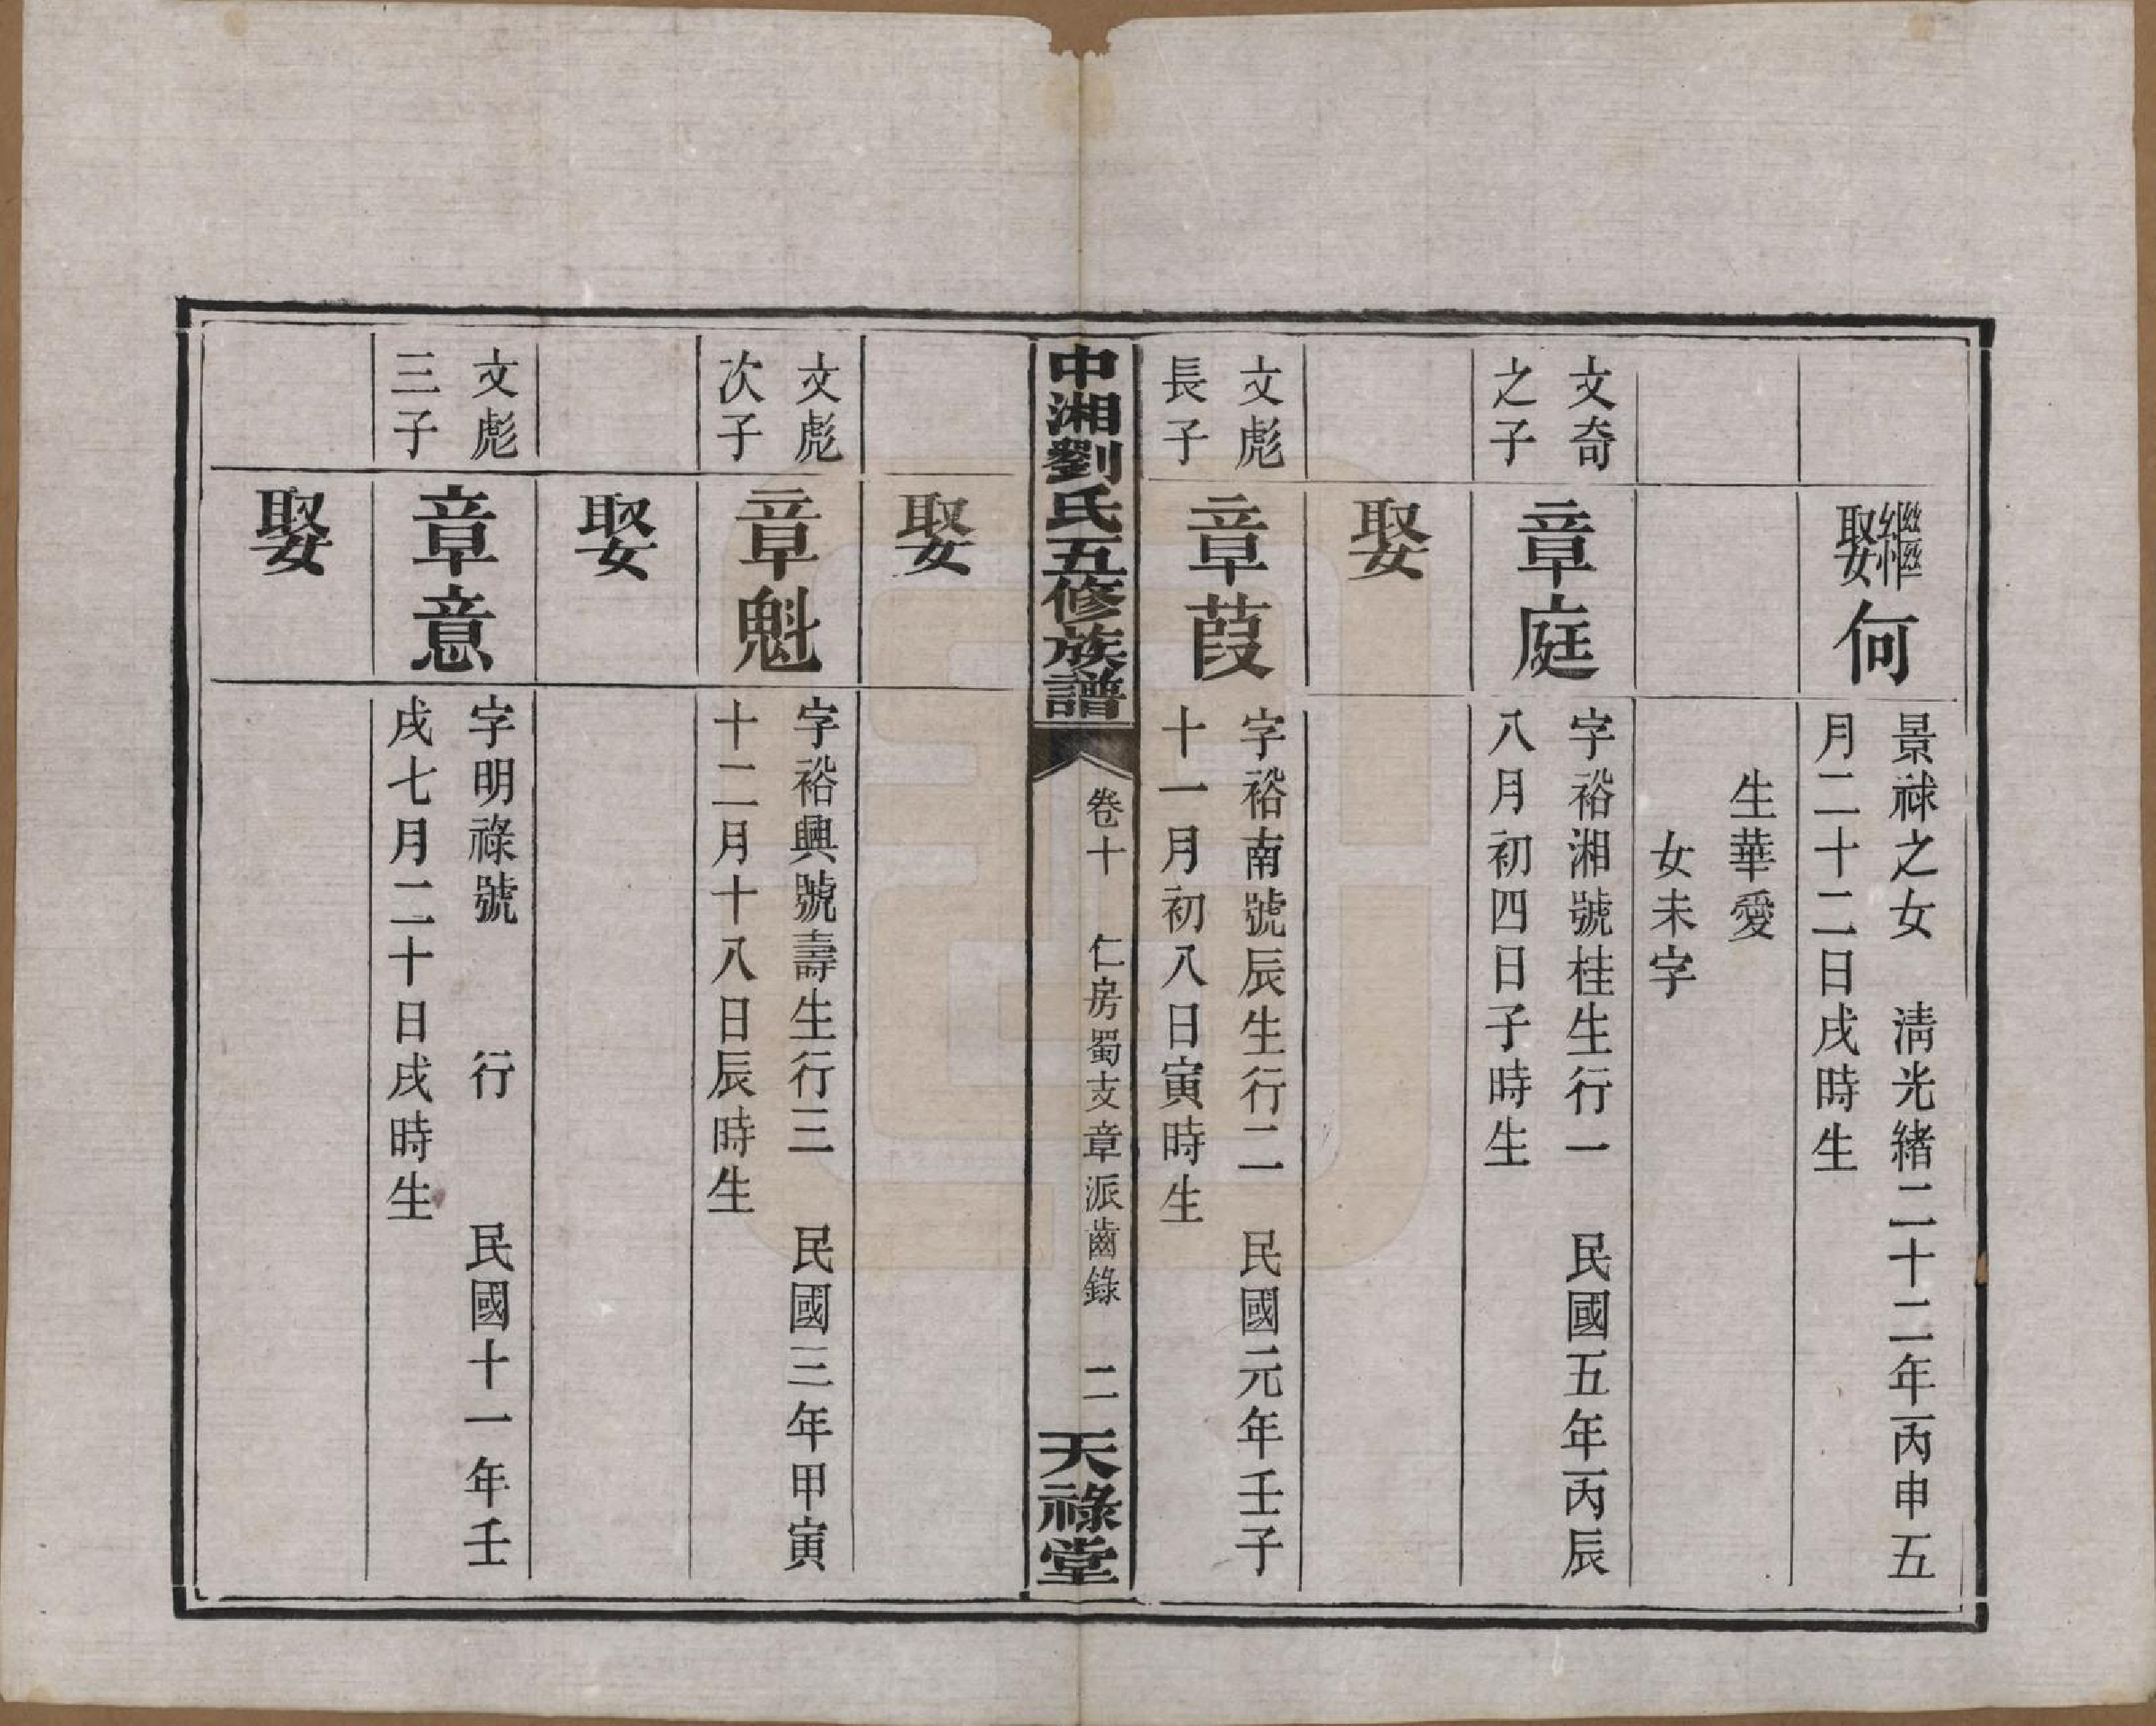 繼娶何
景祿之女　清光緒二十二年丙申五
月二十二日戌時生
生華愛
女未字
文奇
之子
章庭
字裕湘號桂生行一　民國五年丙辰
八月初四日子時生
娶
文彪
長子
章葭
字裕南號辰生行二　民國元年壬子
十一月初八日寅時生
中湘劉氏五修族譜
卷十　仁房蜀支章派齒錄　二
天祿堂
娶
文彪
次子
章魁
字裕興號壽生行三　民國三年甲寅
十二月十八日辰時生
娶
文彪
三子
章意
字明祿號　行　民國十一年壬
戌七月二十日戌時生
娶